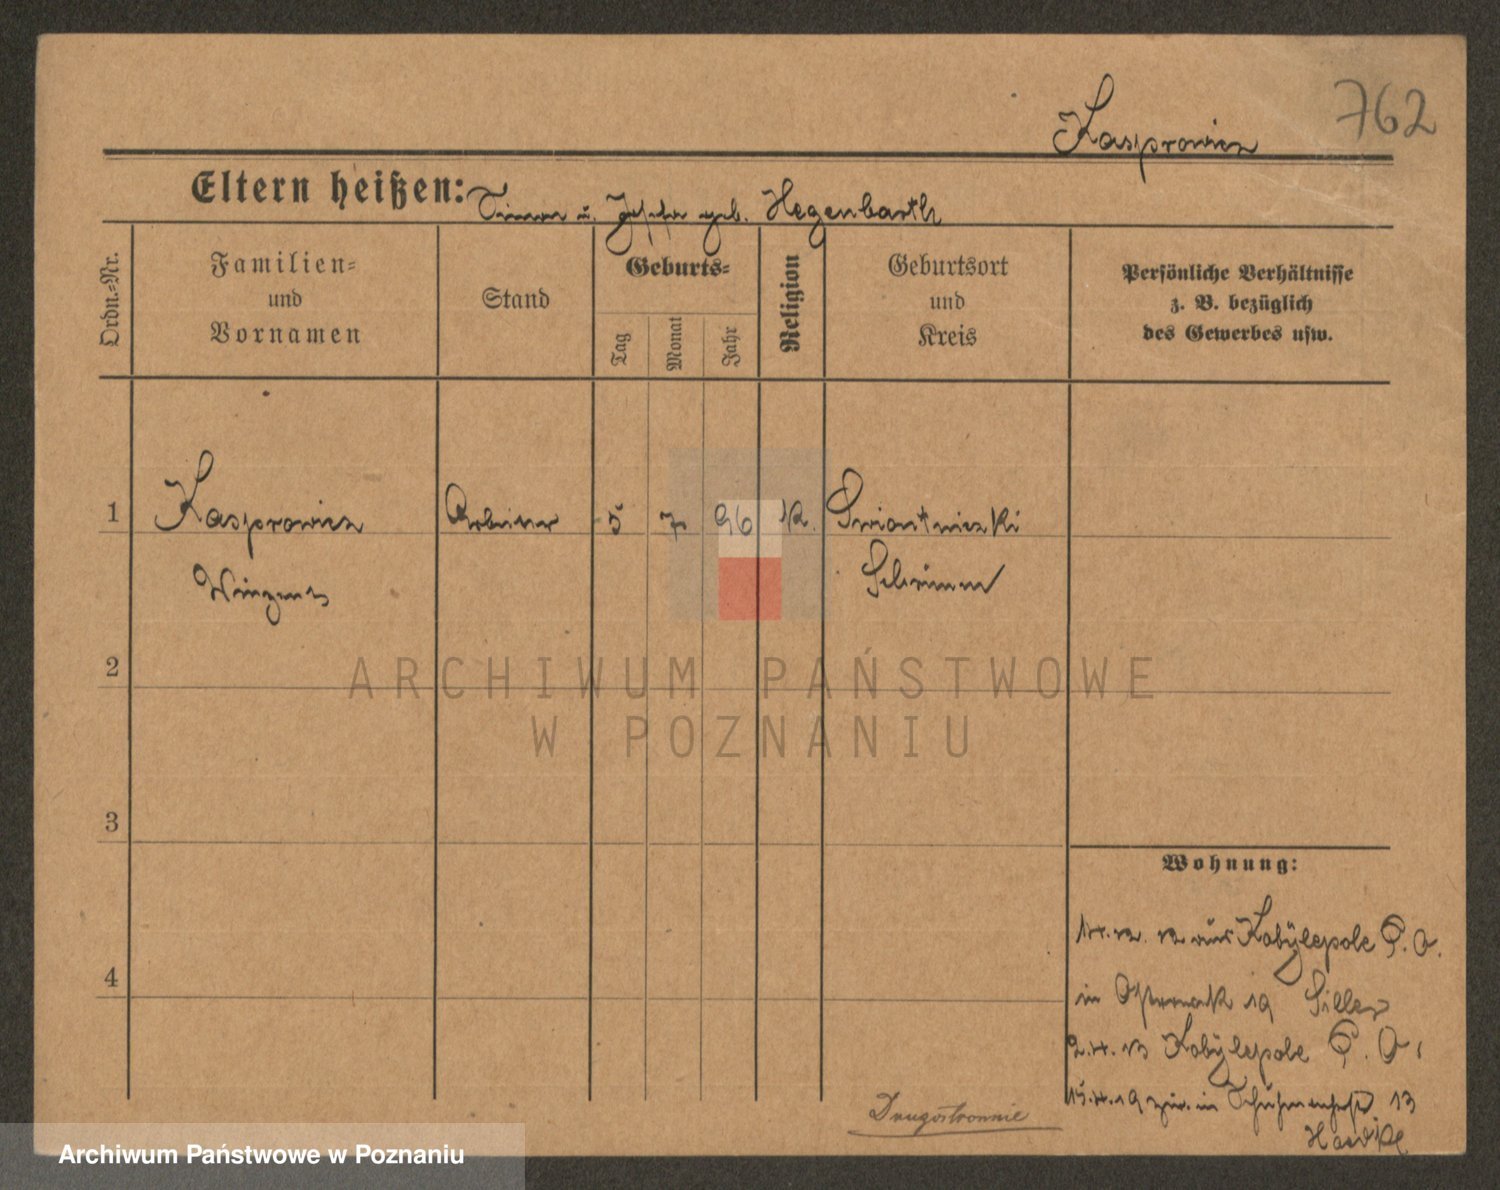 762
Kasprowicz
Eltern heißen: Simon u. Josefa geb. Hegenbarth
Ordn.=Nr.
Familien=
und
Vornamen
Stand
Geburts=
Tag
Monat
Jahr
Religion
Geburtsort
und
Kreis
Persönliche Verhältnisse
z. B. bezüglich
des Gewerbes usw.
1 Kasprowicz Arbeiter 5 7 96 K. Smiontniczki
Schrimm
2
ARCHIWUM PAŃSTWOWE
W POZNANIU
3
Wohnung:
aus Kobylepole P. O.
4
in 19
Kobylepole P. O.
in 13
Drugostronnie
Archiwum Państwowe w Poznaniu